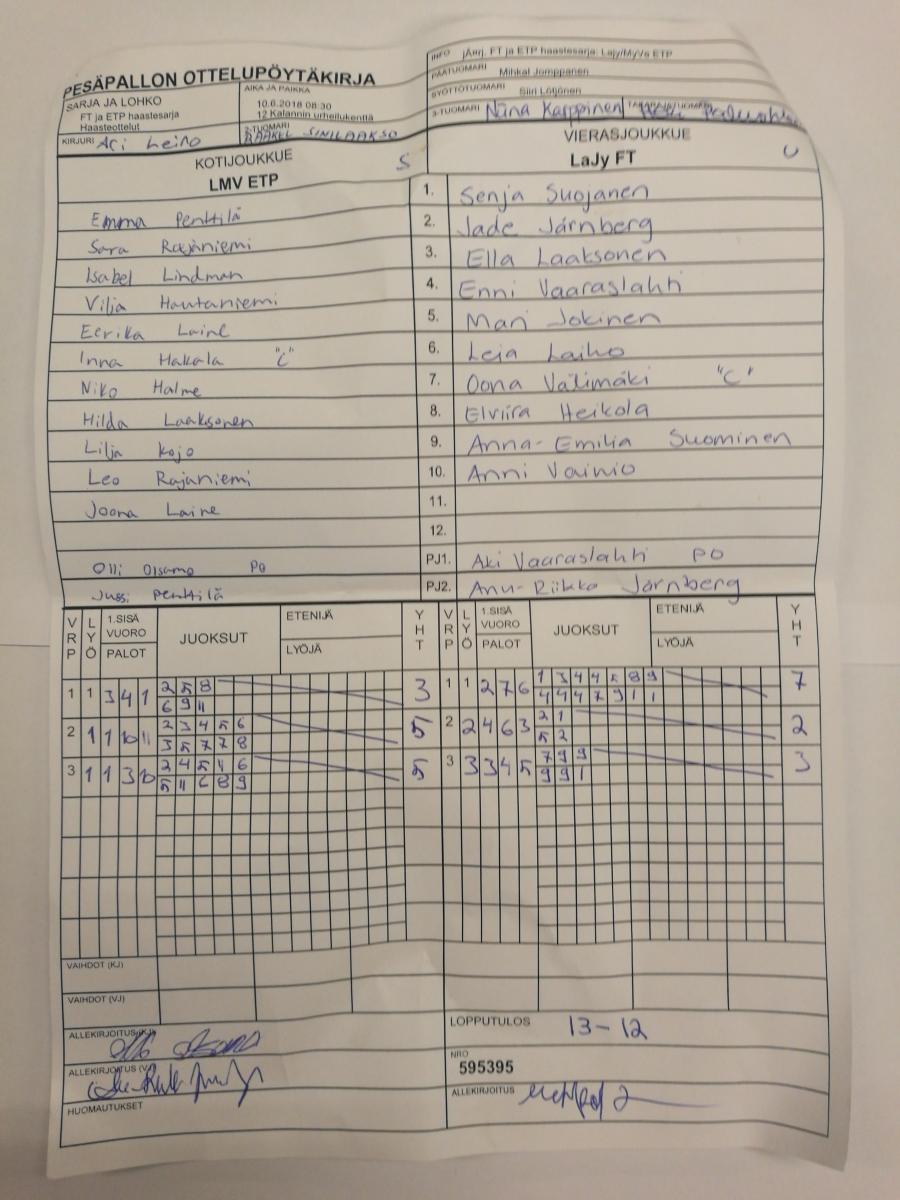 PESÄPALLON OTTELUPÖYTÄKIRJA
SARJA JA LOHKO
FT ja ETP haastesarja
Haasteottelut
AIKA JA PAIKKA
10.6.2018 08:30
12 Kalannin urheilukenttä
KIRJURI Ari Leino
2-TUOMARI
RAAKEL SINILAAKSO
INFO jÄrj. FT ja ETP haastesarja: Lajy/MyVe ETP
PÄÄTUOMARI Mihkal Jomppanen
SYÖTTÖTUOMARI Siiri Lötjönen
3-TUOMARI Niina Karppinen
KOTIJOUKKUE S
LMV ETP
VIERASJOUKKUE
LaJy FT U
Emma Penttilä 1. Senja Suojanen
Sara Rajaniemi 2. Jade Järnberg
Isabel Lindman 3. Ella Laaksonen
Vilja Hautaniemi 4. Enni Vaaraslahti
Eerika Laine 5. Mari Jokinen
Inna Hakala "C" 6. Leia Laiho
Niko Halme 7. Oona Välimäki "C"
Hilda Laaksonen 8. Elviira Heikola
Lilja Kojo 9. Anna-Emilia Suominen
Leo Rajaniemi 10. Anni Vainio
Joona Laine 11.
12.
Olli Oisamo PO PJ1. Aki Vaaraslahti PO
Jussi Penttilä PJ2. Anu-Riikka Järnberg
VRP LYÖ 1.SISÄ VUORO PALOT JUOKSUT ETENIJÄ LYÖJÄ YHT VRP LYÖ 1.SISÄ VUORO PALOT JUOKSUT ETENIJÄ LYÖJÄ YHT
1 1 3 4 1 2 5 8 3 1 1 2 7 6 1 3 4 4 5 8 9 7
6 9 11 4 4 4 7 9 1 1
2 1 1 10 11 2 3 4 5 6 5 2 2 4 6 3 2 1 2
3 5 7 7 8 5 2
3 1 1 3 10 2 4 5 11 6 5 3 3 3 4 5 7 9 9 3
5 11 6 8 9 9 9 1
VAIHDOT (KJ)
VAIHDOT (VJ)
ALLEKIRJOITUS (KJ)
LOPPUTULOS 13-12
ALLEKIRJOITUS (VJ)
NRO
595395
HUOMAUTUKSET
ALLEKIRJOITUS